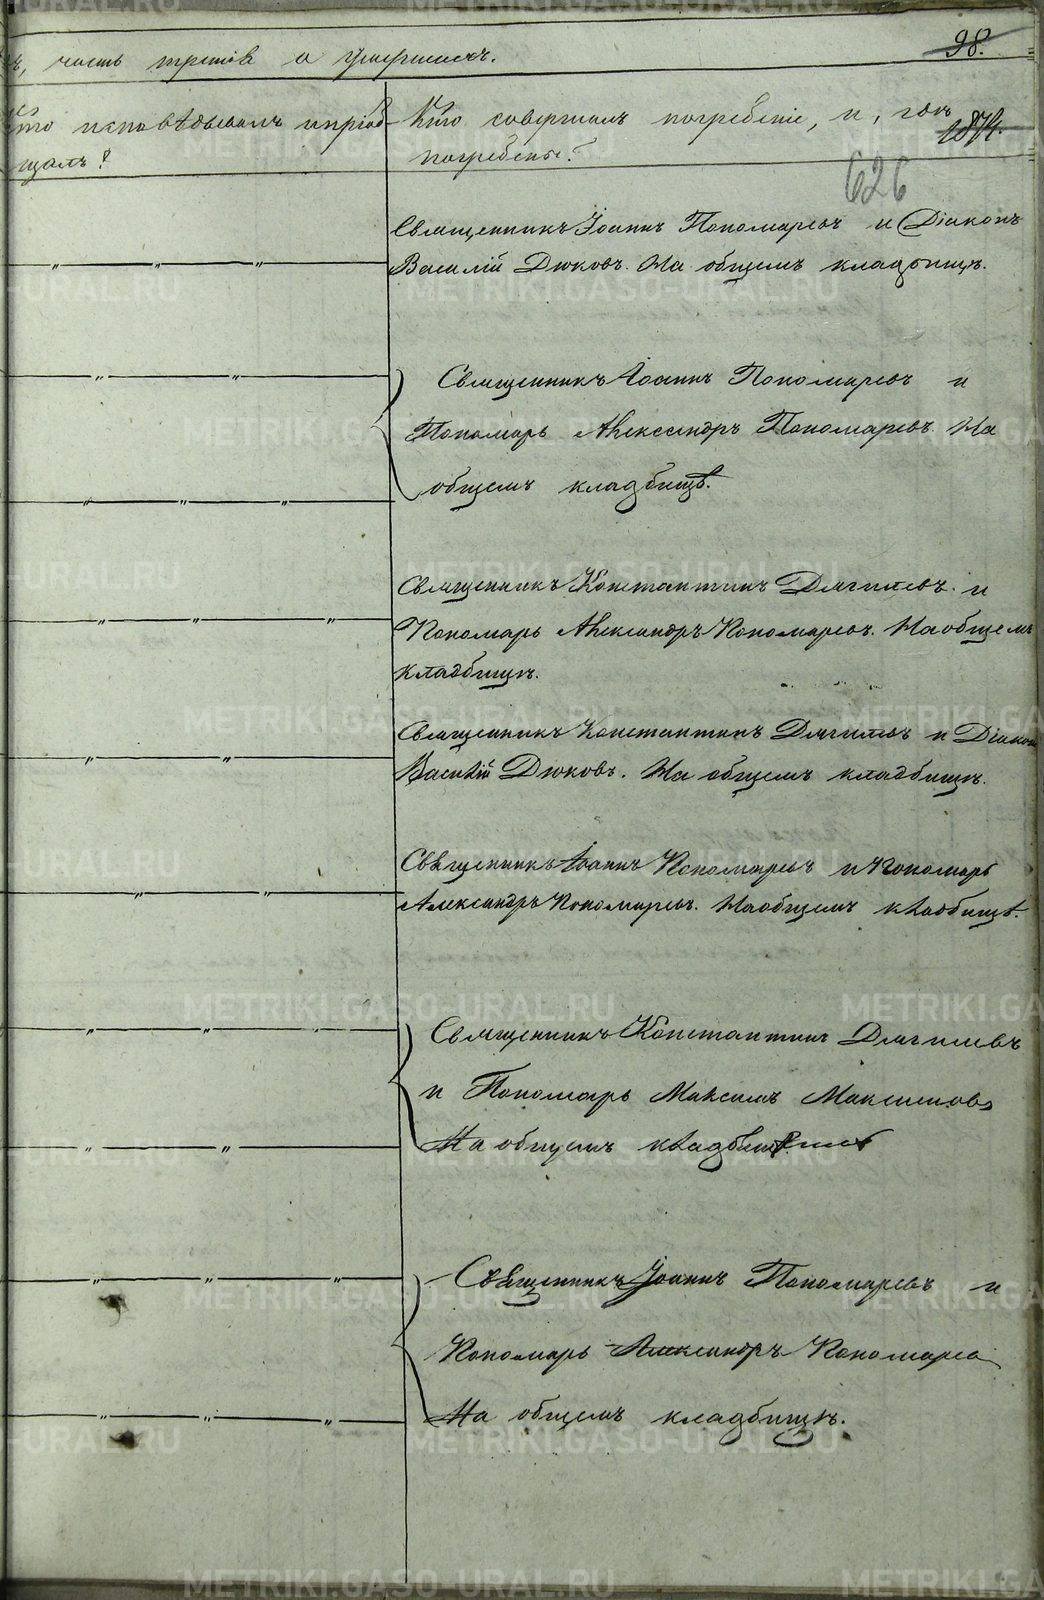 часть третія о умершихъ.
98.
Кто исповѣдывалъ и пріоб-
щалъ?
Кто совершалъ погребеніе, и, гдѣ
погребены?
1874.
626
Священникъ Іоаннъ Пономаревъ и Діаконъ
Василій Дюковъ. На общемъ кладбищѣ.
Священникъ Іоаннъ Пономаревъ и
Пономарь Александръ Пономаревъ. На
общемъ кладбищѣ.
Священникъ Константинъ Дягилевъ. и
Пономарь Александръ Пономаревъ. На общемъ
кладбищѣ.
Священникъ Константинъ Дягилевъ и Діаконъ
Василій Дюковъ. На общемъ кладбищѣ.
Священникъ Іоаннъ Пономаревъ и Пономарь
Александръ Пономаревъ. На общемъ кладбищѣ.
Священникъ Константинъ Дягилевъ
и Пономарь Максимъ Максимовъ
На общемъ
Священникъ Іоаннъ Пономаревъ и
Пономарь Александръ Пономарев
На общемъ кладбищѣ.
METRIKI.GASO-URAL.RU